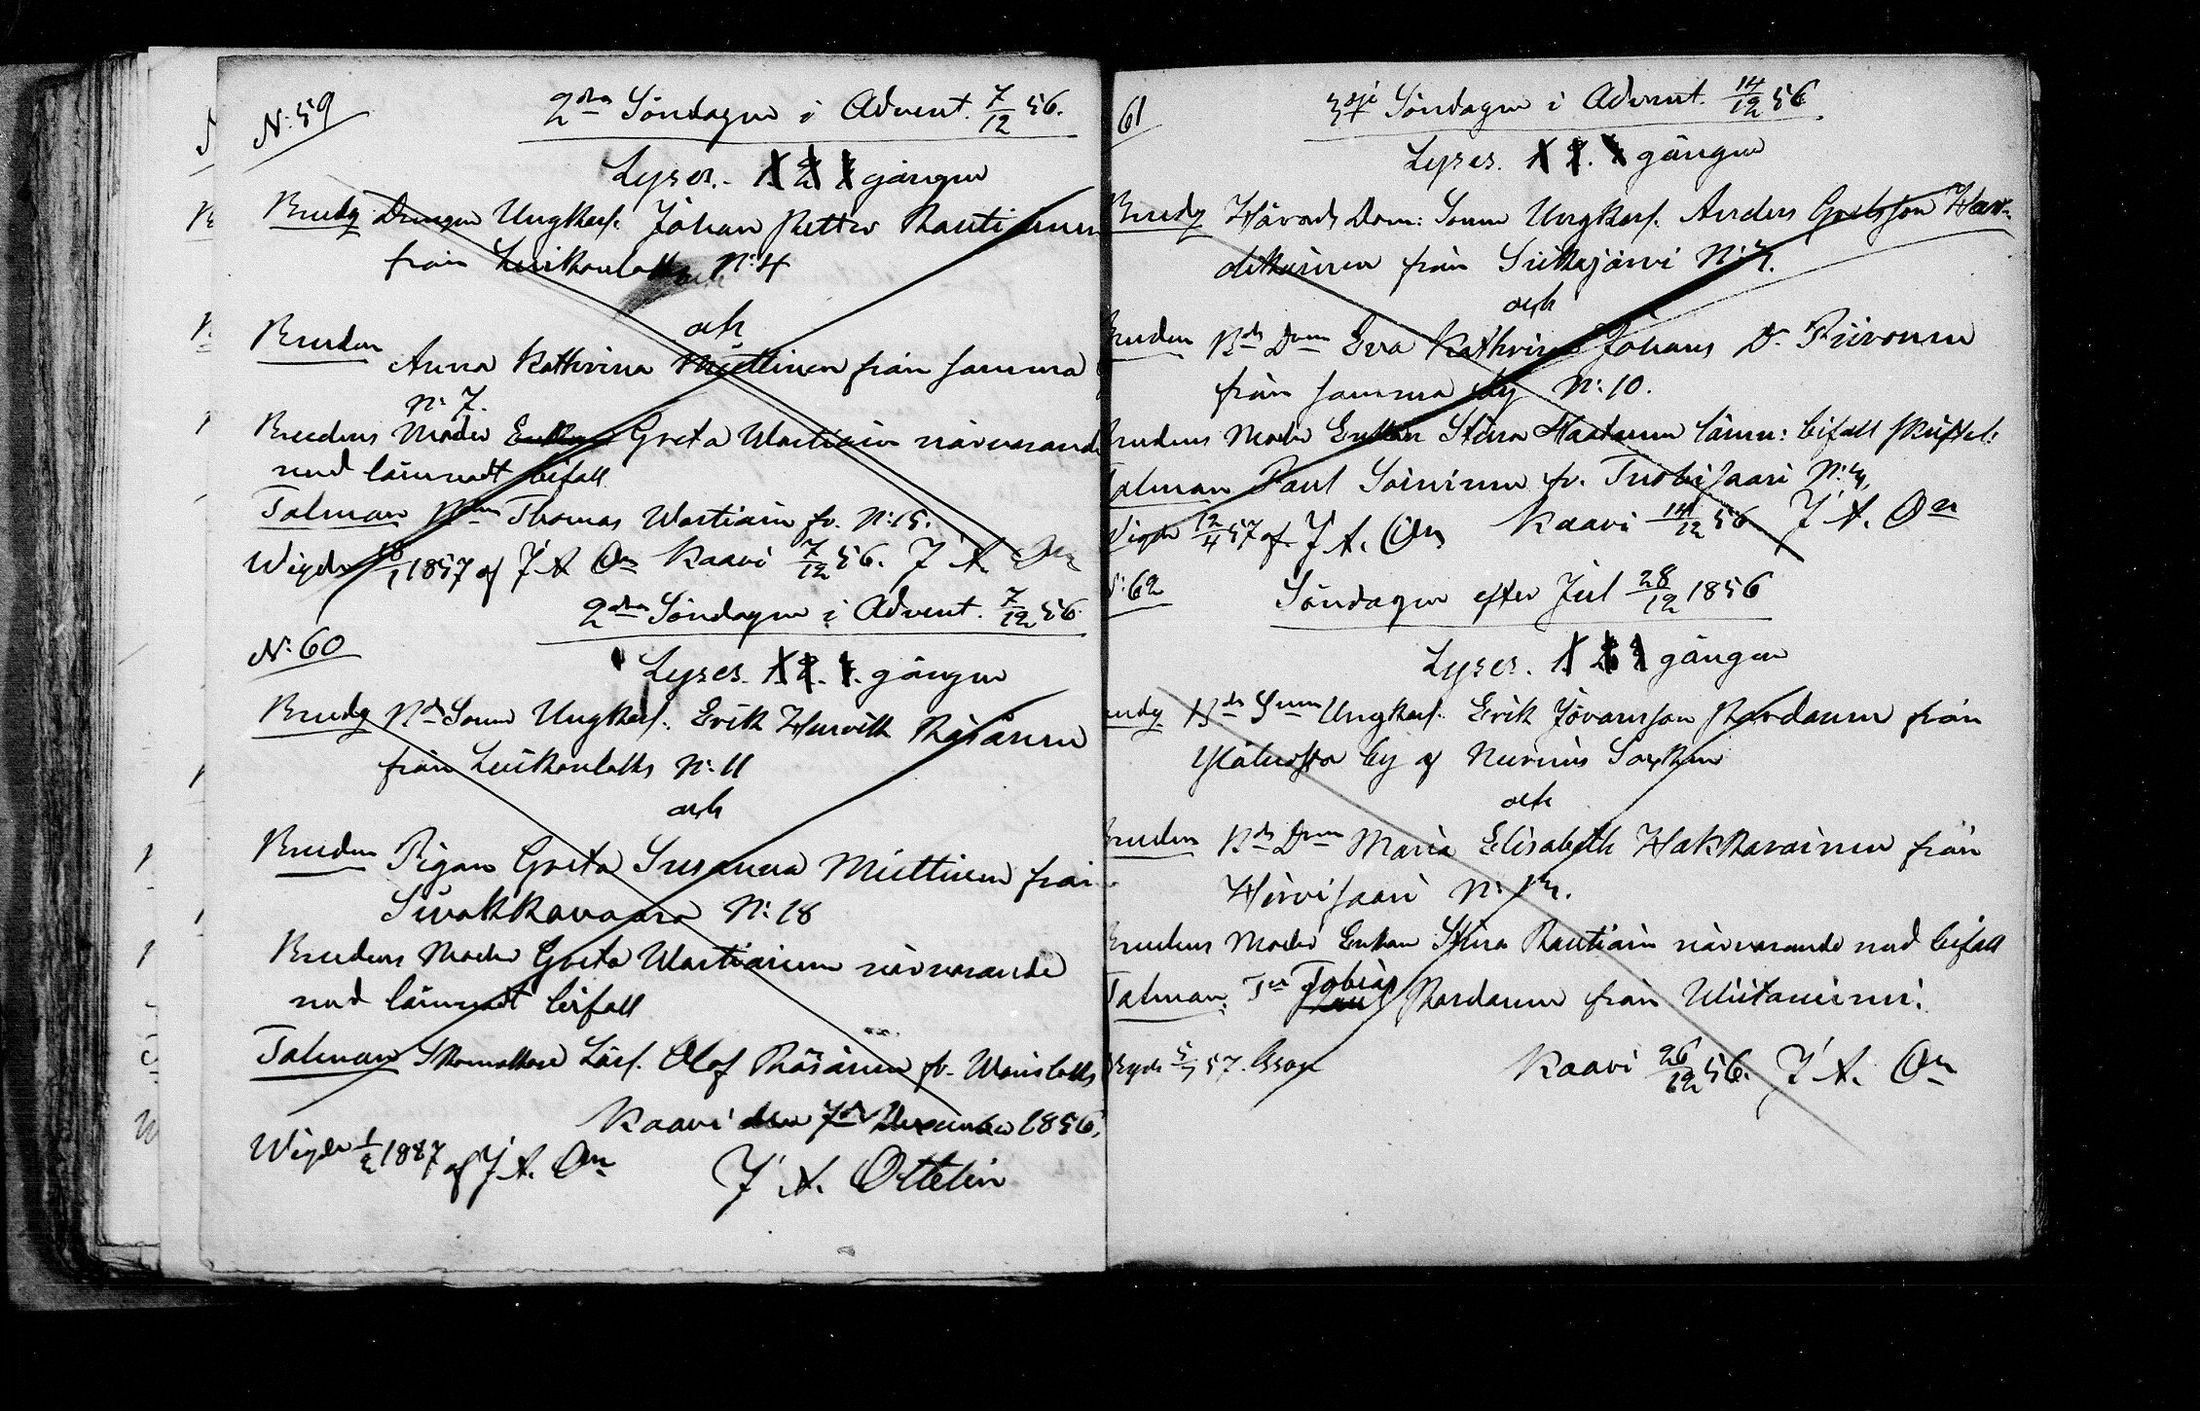 N:59
2dra Söndagen i Advent. 7/12 56.
Lyser. 1. 2. 3. gången
Brudg Drengen Ungkarl. Johan Petter Rautiainen
från Luikonlaks N:4
och
Bruden Anna Kathrina Miettinen från samma
N:7.
Brudens Moder Enkan Greta Wartiain närvarande
med lämnadt bifall
Talman Thomas Wartiain fr. N:15.
Wigde 18/1 1857 af J A On Kaavi 7/12 56. J A. On
2dra Söndagen i Advent. 7/12 56.
N:60
Lyses. 1. 2. 3. gången
Brudg Bds Sonen Ungkarl. Erik Henrik Räsänen
från Luikonlaks N:11
och
Bruden Pigan Greta Susanna Miettinen från
Sivakkavaara N:18
Brudens Moder Greta Wartiainen närvarande
med lämnadt bifall
Talman Skomakare Lärl. Olof Räsänen fr.
Kaavi den 7de December 1856.
Wigde 1/2 1857 af J A. On
J A. Ottelin
61
3dje Söndagen i Advent. 14/12 56
Lyses. 1. 2. 3. gången
Brudg Härads Dom: Sonen Ungkarl. Anders Gretsson Har-
dikainen från Siikajärvi N:
och
Bruden Bds Dren Eva Kathrina Johans D. Piironen
från samma by N:10.
Brudens Moder Enkan Stina lämn: bifall skriftel:
Talman Paul Soininen fr. Tuohisaari N:
Wigde 12/4 57 af J A. On Kaavi 14/12 56 J A. On
N:62
Söndagen efter Jul 28/12 1856
Lyses. 1 2 3 gången
Brudg Bds Sonen Ungkarl. Erik Johansson Pardanen från
by af Nurmis Sockn
och
Bruden Bds Dren Maria Elisabeth Hakkarainen från
Hirvisaari N:
Brudens Moder Enkan Stina Rautiain närvarande med bifall
Talman Tobias Pardanen från
Wigde 57. Kaavi 26/12 56. J A. On